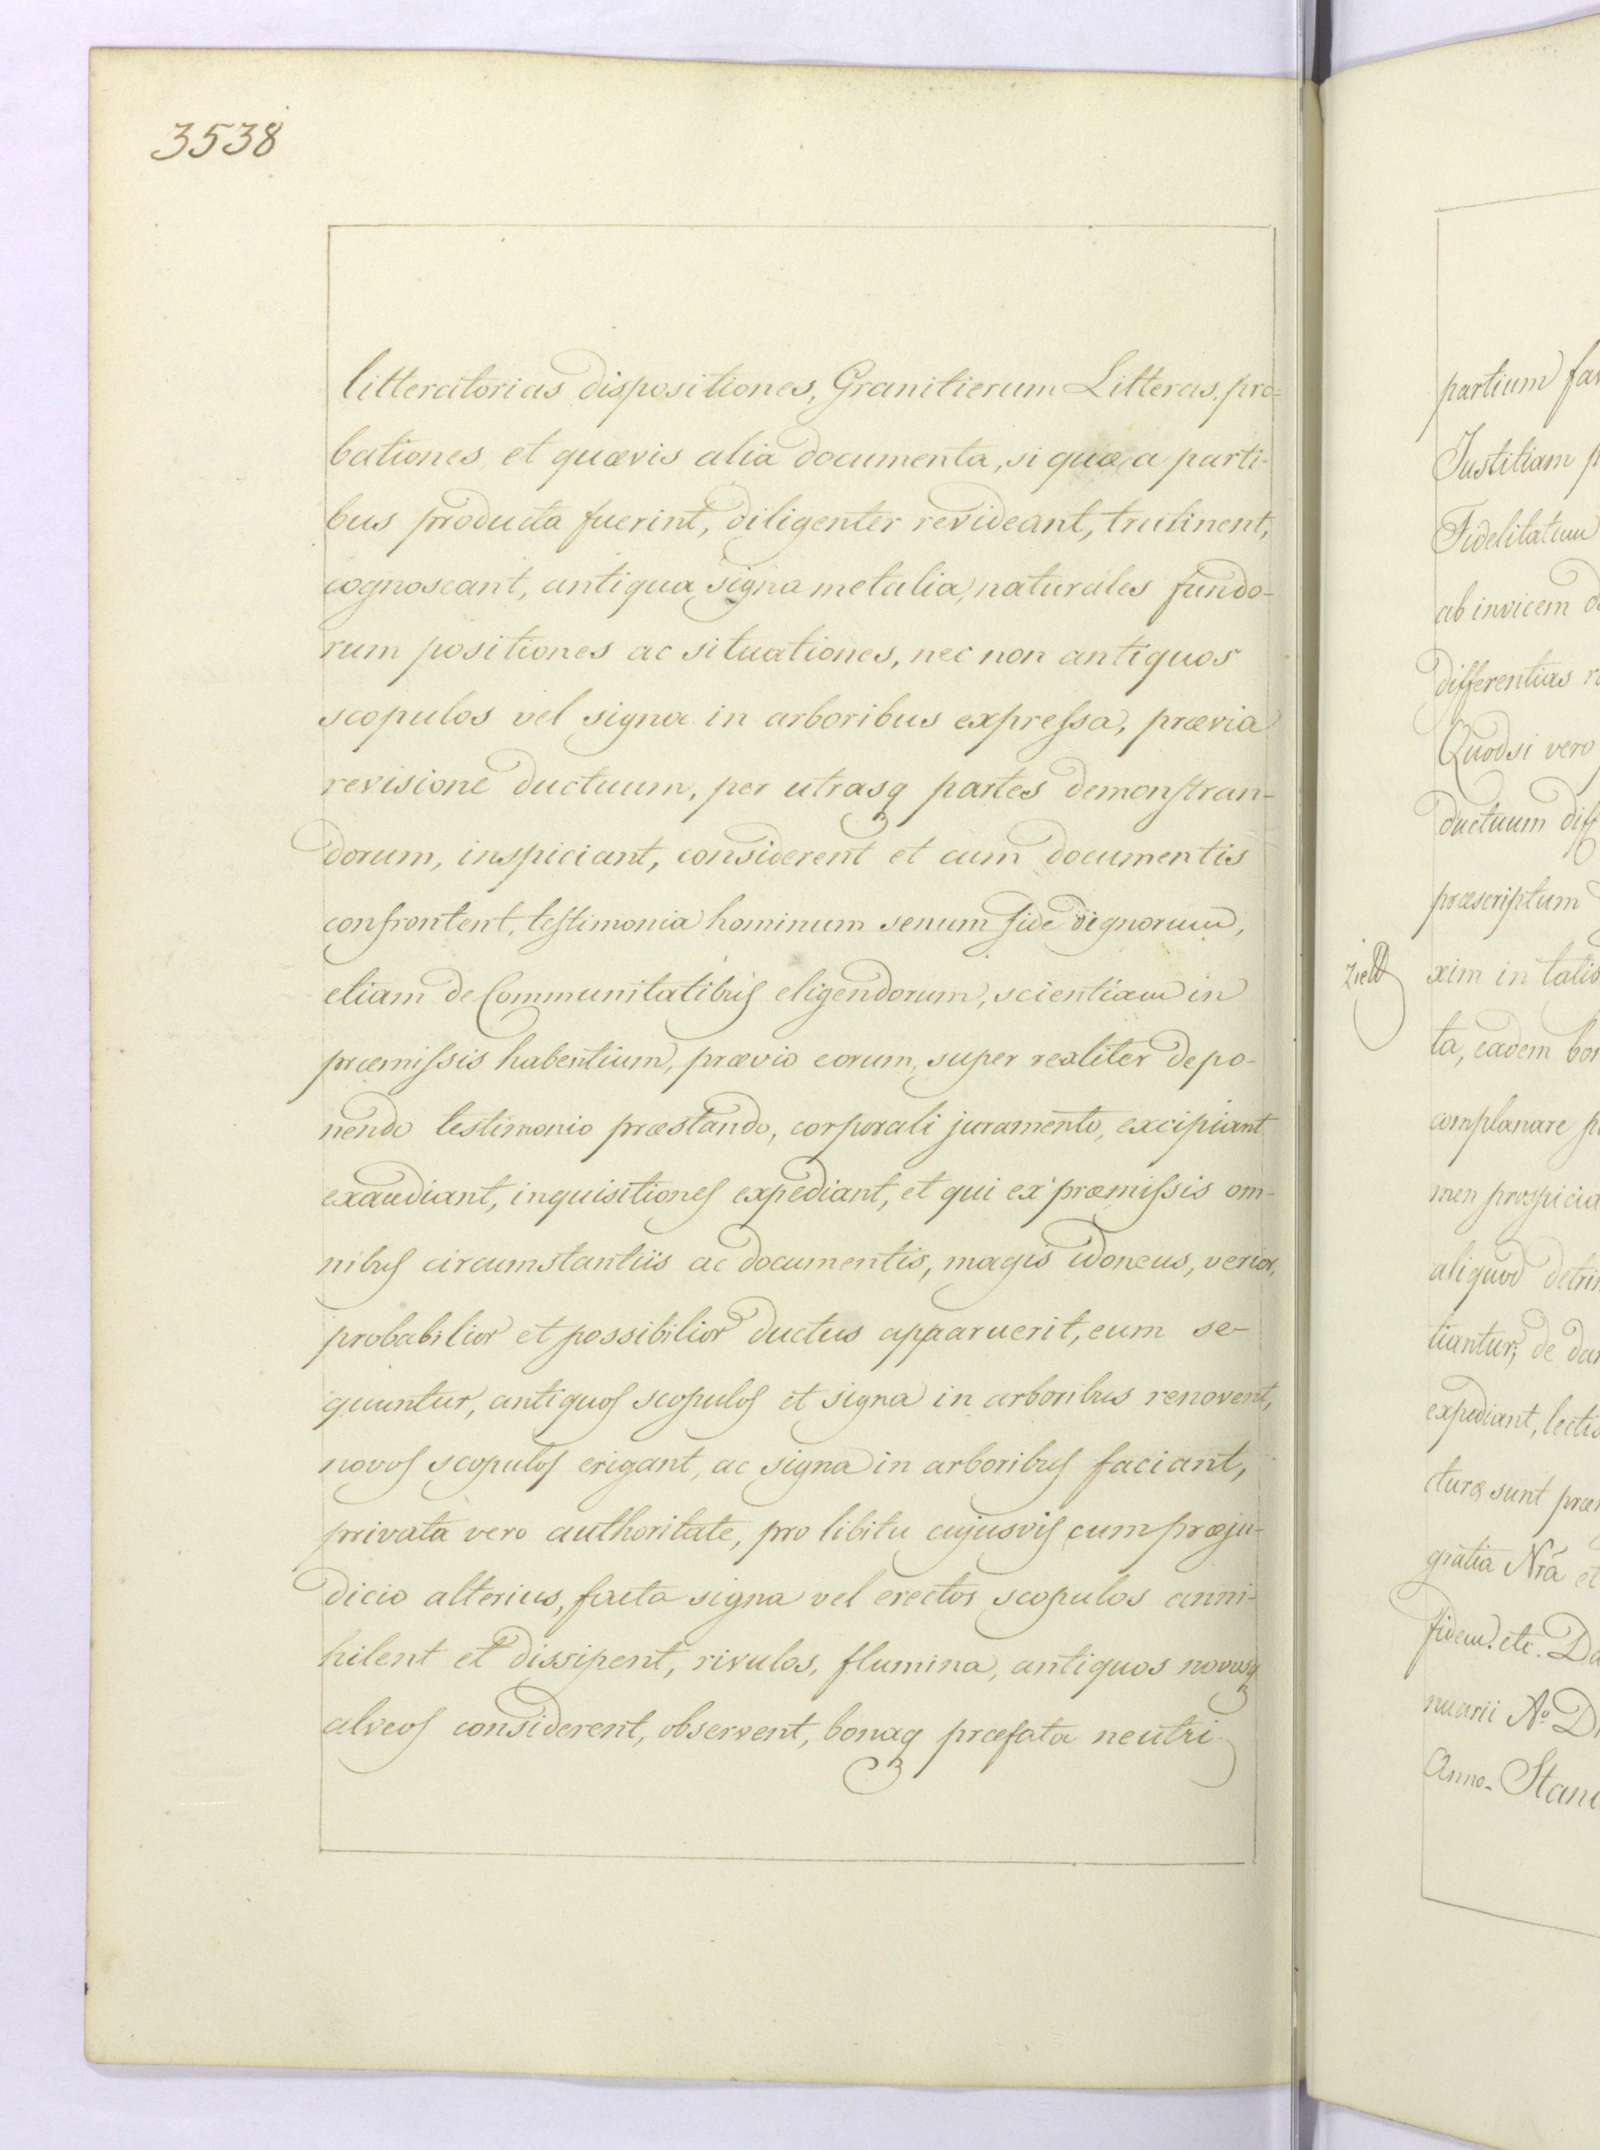 3538
litteratorias dispositiones, Granitierum Litteras, pro=
bationes et quævis alia documenta, si quæ a parti-
bus producta fuerint, diligenter revideant, trutinent,
cognoscant, antiqua signa metalia, naturales fundo-
rum positiones ac situationes, nec non antiquos
scopulos vel signa in arboribus expressa, prævia
revisione ductuum, per utrasq partes demonstran-
dorum, inspiciant, considerent et cum documentis
confrontent, testimonia hominum senum fide dignorum,
etiam de Communitatibus eligendorum, scientiam in
præmissis habentium, prævio eorum, super realiter depo-
nendo testimonio præstando, corporali juramento, excipiant
exaudiant, inquisitiones expediant, et qui ex præmissis om-
nibus circumstantiis ac documentis, magis idoneus, verior,
probabilior et possibilior ductus apparuerit, eum se-
quuntur, antiquos scopulos et signa in arboribus renovent,
novos scopulos erigant, ac signa in arboribus faciant,
privata vero authoritate, pro libitu cujusvis cum præju-
dicio alterius, facta signa vel erectos scopulos anni-
hilent et dissipent, rivulos, flumina, antiquos novosq
alveos considerent, observent, bonaq præfata neutri
partium
Justitiam
Fidelitatum
ab invicem
differentias
Quodsi vero
ductuum
præscriptum
xim in
ta, eadem
complanare
men
aliquod
tiantur, de
expediant,
cturæ sunt
gratia Nrã et
fidem. etc.
nuarii Aº
Anno-